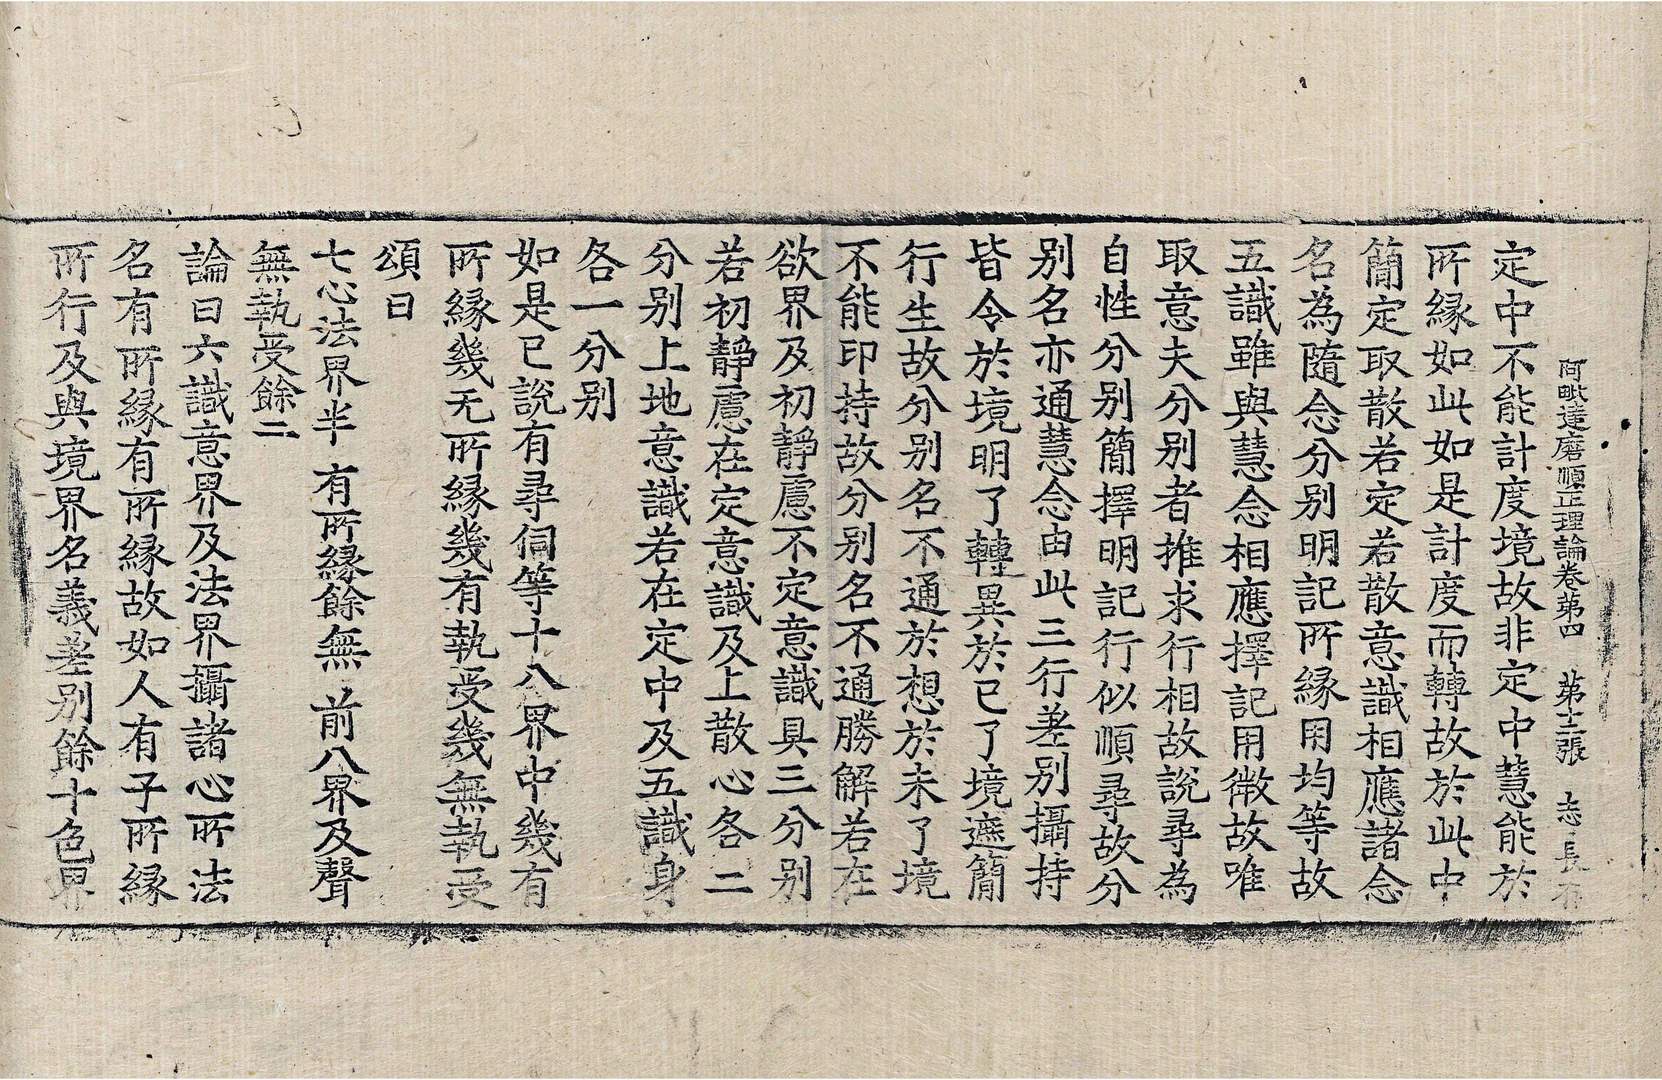 阿毗達磨順正理論卷第四 第十二張 志
定中不能計度境故非定中慧能於
所緣如此如是計度而轉故於此中
簡定取散若定若散意識相應諸念
名為隨念分別明記所緣用均等故
五識雖與慧念相應擇記用微故唯
取意夫分別者推求行相故說尋為
自性分別簡擇明記行似順尋故分
別名亦通慧念由此三行差別攝持
皆令於境明了轉異於已了境遮簡
行生故分別名不通於想於未了境
不能印持故分別名不通勝解若在
欲界及初靜慮不定意識具三分別
若初靜慮在定意識及上散心各二
分別上地意識若在定中及五識身
各一分別
如是已說有尋伺等十八界中幾有
所緣幾无所緣幾有執受幾無執受
頌曰
七心法界半 有所緣餘無 前八界及聲
無執受餘二
論曰六識意界及法界攝諸心所法
名有所緣有所緣故如人有子所緣
所行及與境界名義差別餘十色界